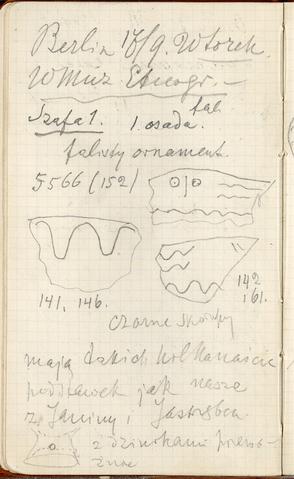 Berlin 17/9. Wtorek.
W Muz. Etnogr. —
Szafa 1. 1. osada. fal.
falisty ornament.
5566 (152)
142
161.
141, 146.
czarne skorupy
mają takich kilkanaście
podstawek jak nasze
z Janiny i Jastrzębca
z dziurkami